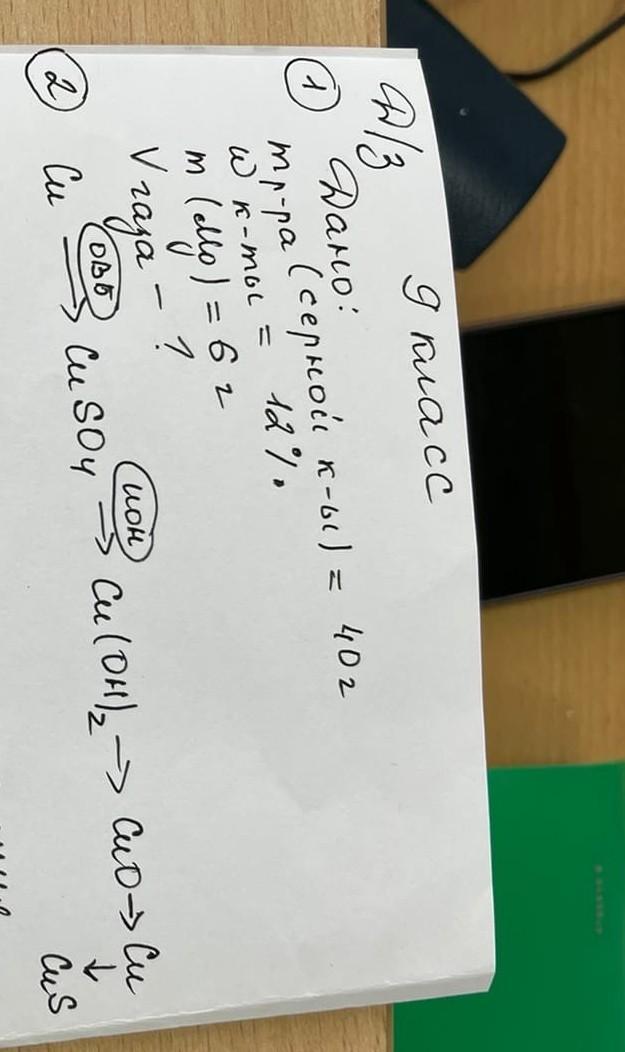 9 класс
Д/З
① Дано:
m р-ра (серной к-ы) = 40г
w к-ты = 12%.
m (Mg) = 6г
V газа - ?
② Cu →(ОВБ) CuSO4 →(ИОН) Cu(OH)2 → CuO → Cu
↓
CuS